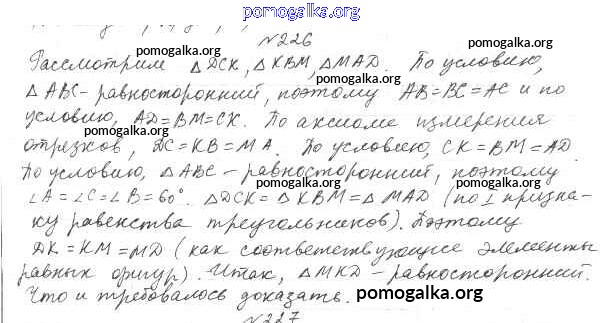 pomogalka.org
№226
pomogalka.org pomogalka.org
Рассмотрим △DCK, △KBM, △MAD. По условию,
△ABC - равносторонний, поэтому AB=BC=AC и по
условию, AD=BM=CK. По аксиоме измерения
отрезков, DC=KB=MA. По условию, CK=BM=AD
По условию, △ABC - равносторонний, поэтому
pomogalka.org pomogalka.org
∠A=∠C=∠B=60°. △DCK=△KBM=△MAD (по I призна-
ку равенства треугольников). Поэтому
DK=KM=MD (как соответствующие элементы
равных фигур). Итак, △MKD - равносторонний.
Что и требовалось доказать. pomogalka.org
№227